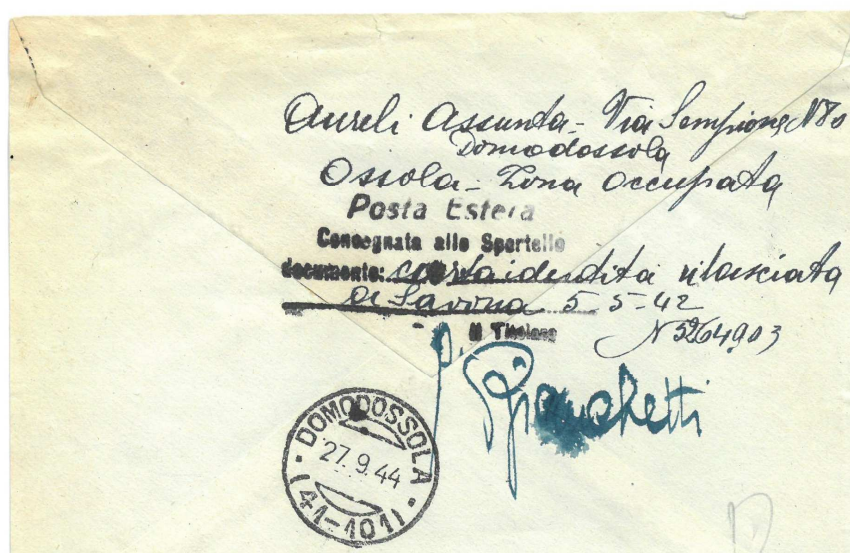 Aureli Assunta - Via Sempione N 80
Domodossola
Ossola - Zona Occupata
Posta Estera
Consegnata allo Sportello
documento: carta idendità rilasciata
a Savona 5-5-42
Il Titolare
N 5264903
Bianchetti
DOMODOSSOLA
27.9.44
(41-101)